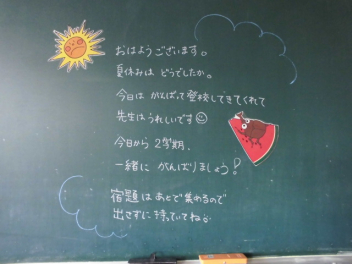 おはようございます。
夏休みは どうでしたか。
今日は がんばって登校してきてくれて
先生はうれしいです☺
今日から 2学期。
一緒に がんばりましょう!
宿題はあとで集めるので
出さずに 持っていてね。